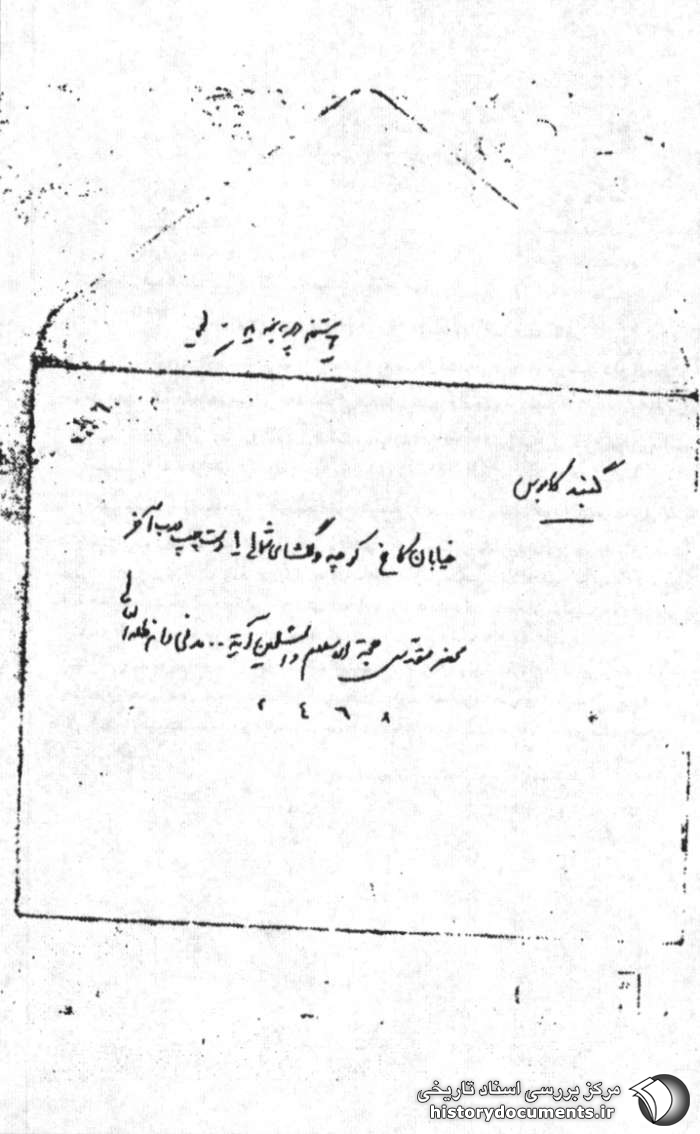 گنبد کاوس
خیابان کاخ کوچه دلگشای شمالی دست چپ درب آخر
محضر مقدس حجة الاسلام والمسلمین آیة... مدنی دام ظله العالی
۲ ٤ ٦ ۸
مرکز بررسی اسناد تاریخی
historydocuments.ir